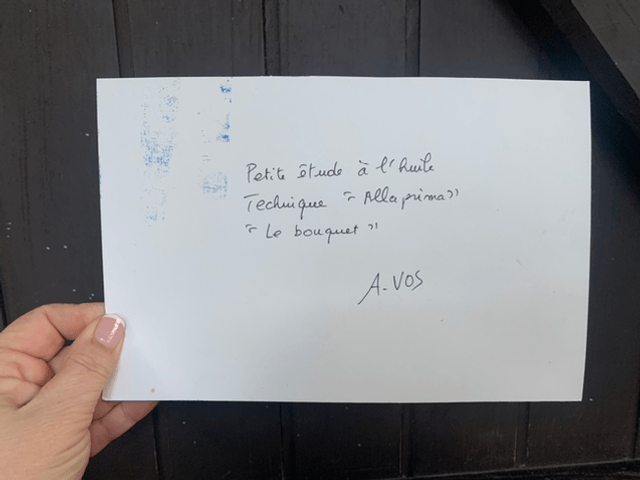 Petite étude à l'huile
Technique " Alla prima "
" Le bouquet "
A. VOS